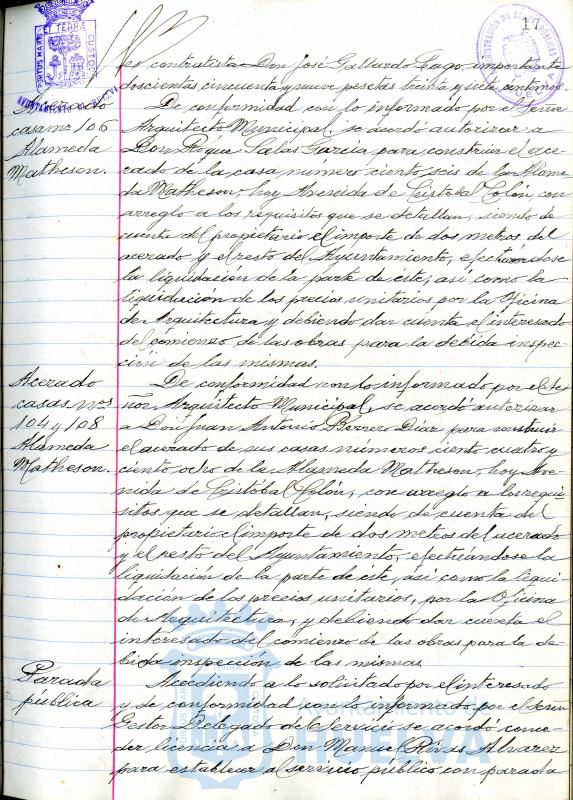 17
es contratista Don José Gallardo Lago, importante
doscientas cincuenta y nueve pesetas treinta y siete centimos.
Acerado
casa nº 106
Alameda
Matheson.
De conformidad con lo informado por el Señor
Arquitecto Municipal, se acordó autorizar a
Don Roque Salas García para construir el ace-
rado de la casa número ciento seis de la Alame-
da Matheson, hoy Avenida de Cristobal Colón, con
arreglo a los requisitos que se detallan, siendo de
cuenta del propietario el importe de dos metros del
acerado y el resto del Ayuntamiento, efectuandose
la liquidación de la parte de éste, así como la
liquidación de los precios unitarios por la Oficina
de Arquitectura y debiendo dar cuenta el interesado
del comienzo de las obras para la debida inspec-
ción de las mismas.
Acerado
casas nos
104 y 108
Alameda
Matheson.
De conformidad con lo informado por el Se-
ñor Arquitecto Municipal, se acordó autorizar
a Don Juan Antonio Borrero Díaz para construir
el acerado de sus casas números ciento cuatro y
ciento ocho de la Alameda Matheson, hoy Ave-
nida de Cristóbal Colón, con arreglo a los requi-
sitos que se detallan, siendo de cuenta del
propietario el importe de dos metros del acerado
y el resto del Ayuntamiento, efectuándose la
liquidación de la parte de éste, así como la liqui-
dación de los precios unitarios, por la Oficina
de Arquitectura, y debiendo dar cuenta el
interesado del comienzo de las obras para la de-
bida inspección de las mismas.
Parada
pública
Accediendo a lo solicitado por el interesado
y de conformidad con lo informado por el Señor
Gestor Delegado de Servicio se acordó conce-
der licencia a Don Manuel Rivas Alvarez
para establecer al servicio público con parada
Ayuntamiento de
HUELVA